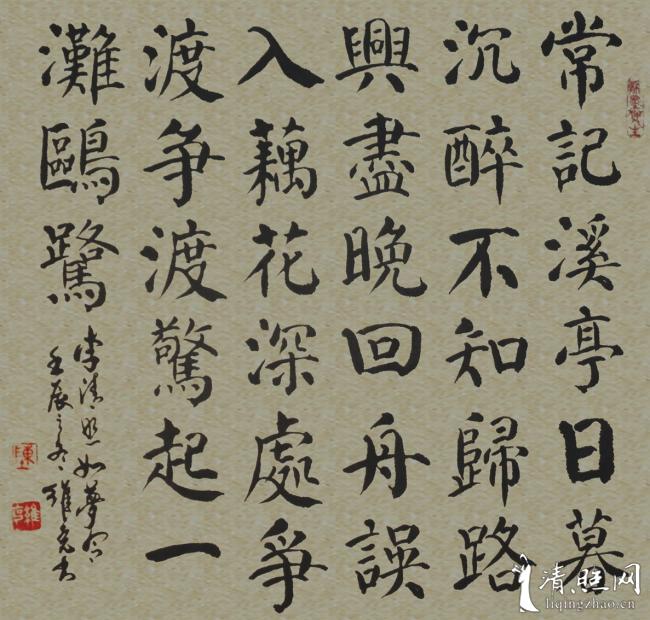 常記溪亭日暮
沉醉不知歸路
興盡晚回舟誤
入藕花深處爭
渡争渡驚起一
灘鷗鷺
李清照如夢令
壬辰之冬維书
清照网
liqingzhao.cn